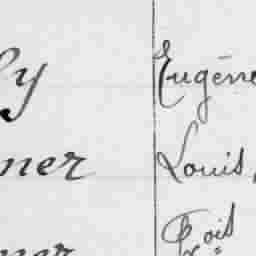 ly Eugène
ner Louis,
ner Fçois